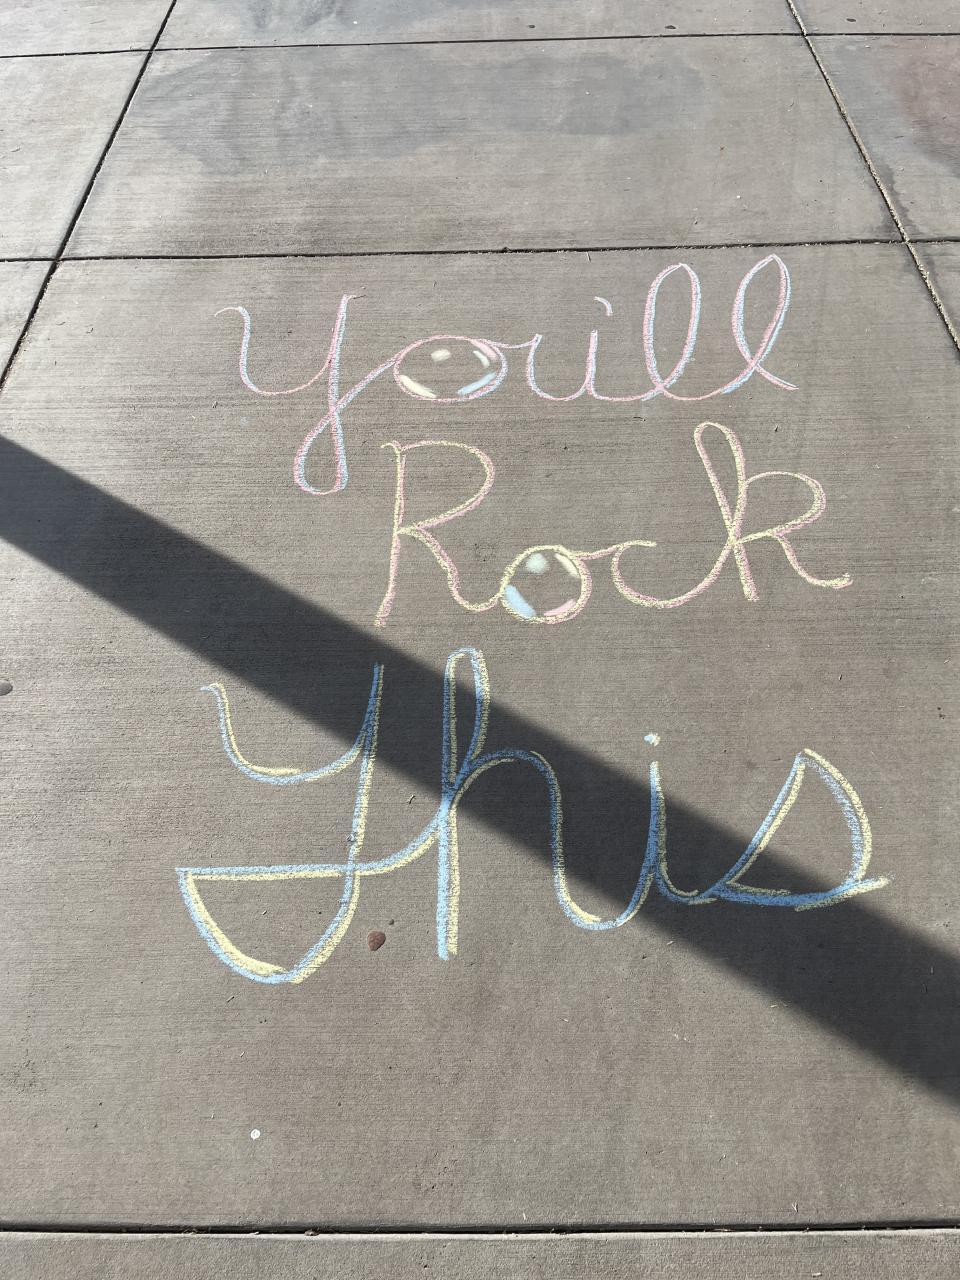 You'll
Rock
This